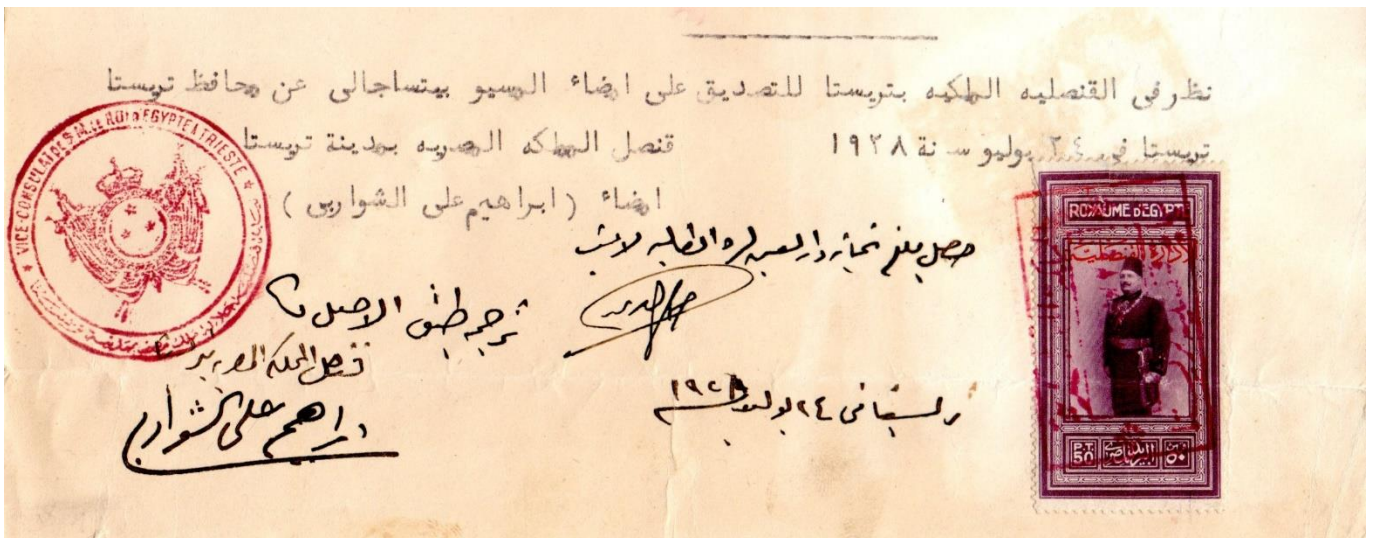 نظر فى القنصليه الملكيه بتريستا للتصديق على امضاء المسيو بيتساجالى عن محافظ تريستا
تريستا فى ٢٤ يوليو سنة ١٩٢٨ قنصل المملكه المصريه بمدينة تريستا
امضاء ( ابراهيم على الشواربى )
★ VICE CONSULAT DE S.M. LE ROI D'EGYPTE A TRIESTE ★
حصل مبلغ
ترجمه طبق الاصل
قنصل المملكه المصريه
ابراهيم على الشواربى
فى ٢٤ يوليو ١٩٢٨
ROYAUME D'EGYPTE
P.T. 50
٥٠